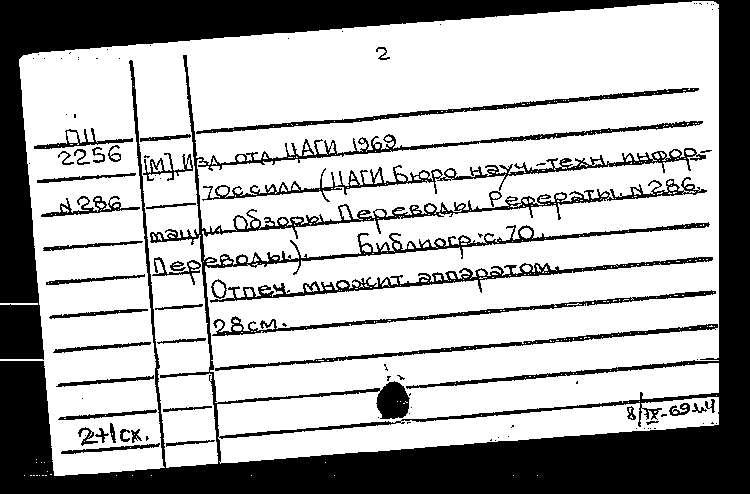 2
П11
2256
[М], Изд. отд. ЦАГИ, 1969.
70 с. с илл. (ЦАГИ. Бюро науч.-техн. инфор-
N 286
мации. Обзоры. Переводы. Рефераты. N 286.
Переводы.). Библиогр.: с. 70.
Отпеч. множит. аппаратом.
28 см.
2+1 сх.
8/IX-69